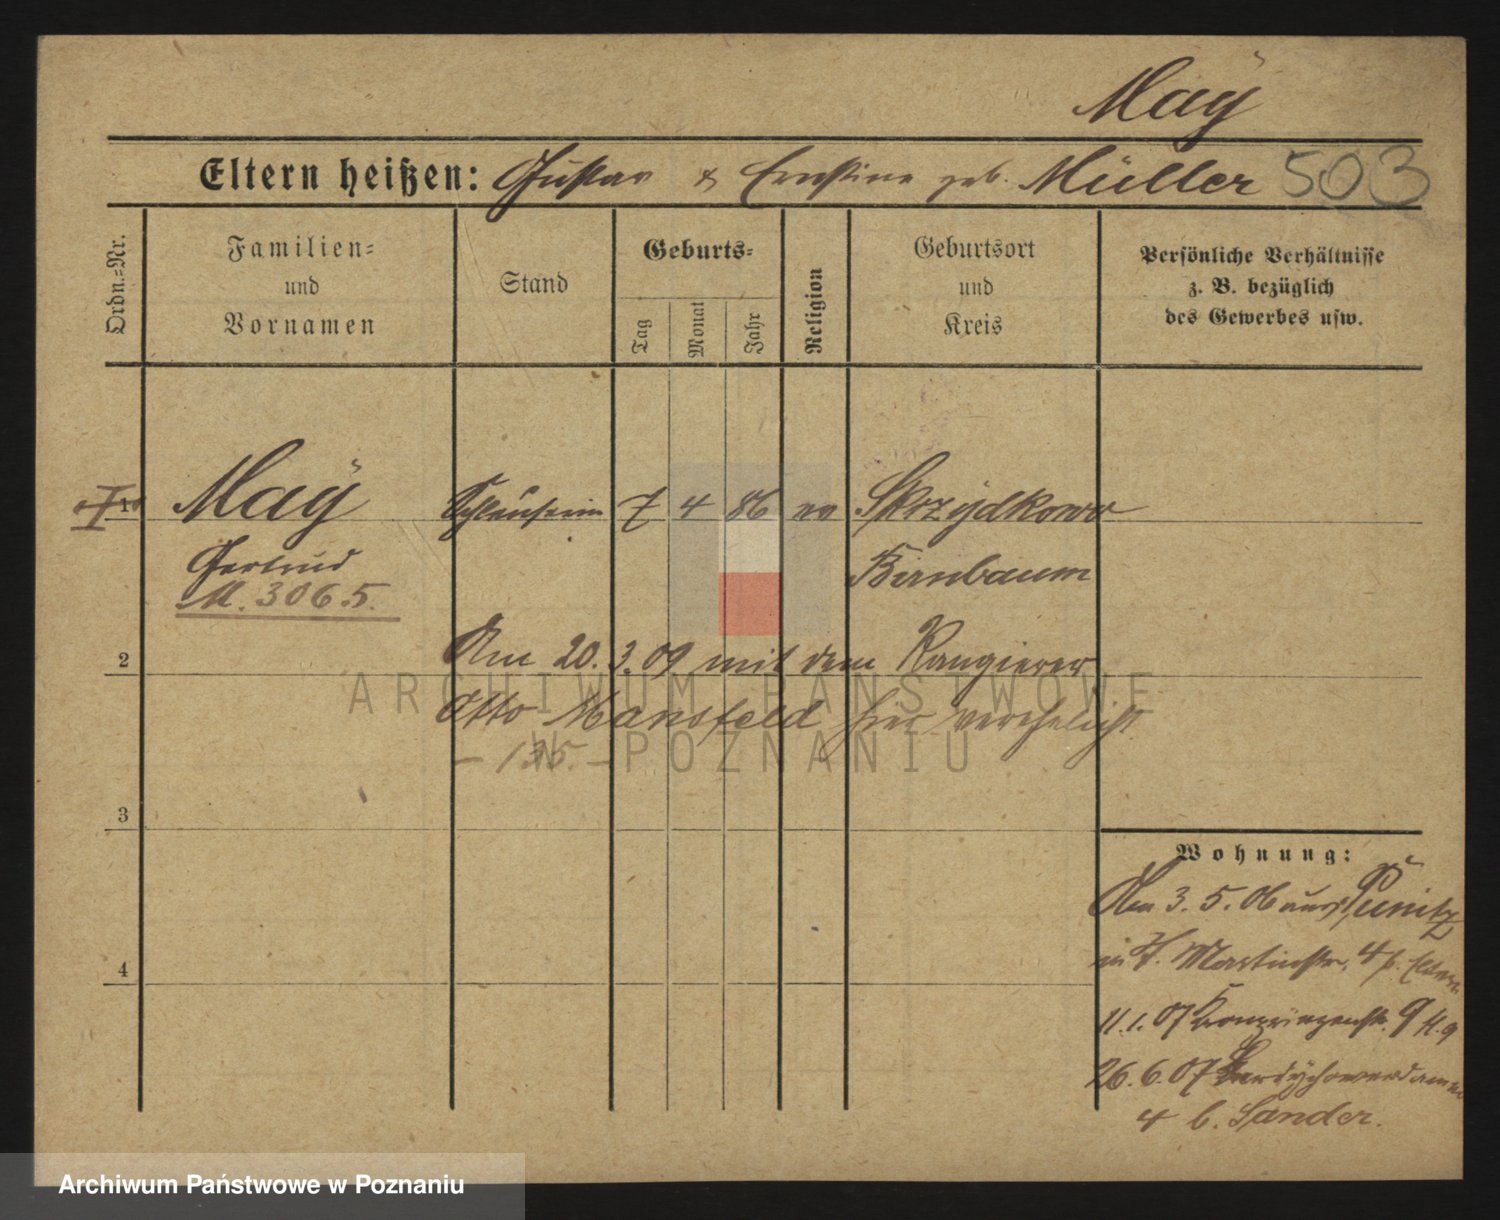 Maÿ
Eltern heißen: Gustav & Ernstine geb. Müller 503
Ordn.=Nr.
Familien=
und
Vornamen
Stand
Geburts=
Tag
Monat
Jahr
Religion
Geburtsort
und
Kreis
Persönliche Verhältnisse
z. B. bezüglich
des Gewerbes usw.
1 Maÿ 7 4 86 ev Skrzydlkowo
Gertrud Birnbaum
M. 306.5.
Am 20.3.09 mit dem Rangierer
2
Otto Mansfeld hier verehelicht
- 135. -
3
Wohnung:
Am 3.5.06 aus Punitz
in St. Martinstr. 4 b. Eltern
4
11.1.07 Kronprinzenstr. 9
26.6.07
4 b. Sander.
ARCHIWUM PAŃSTWOWE
W POZNANIU
Archiwum Państwowe w Poznaniu